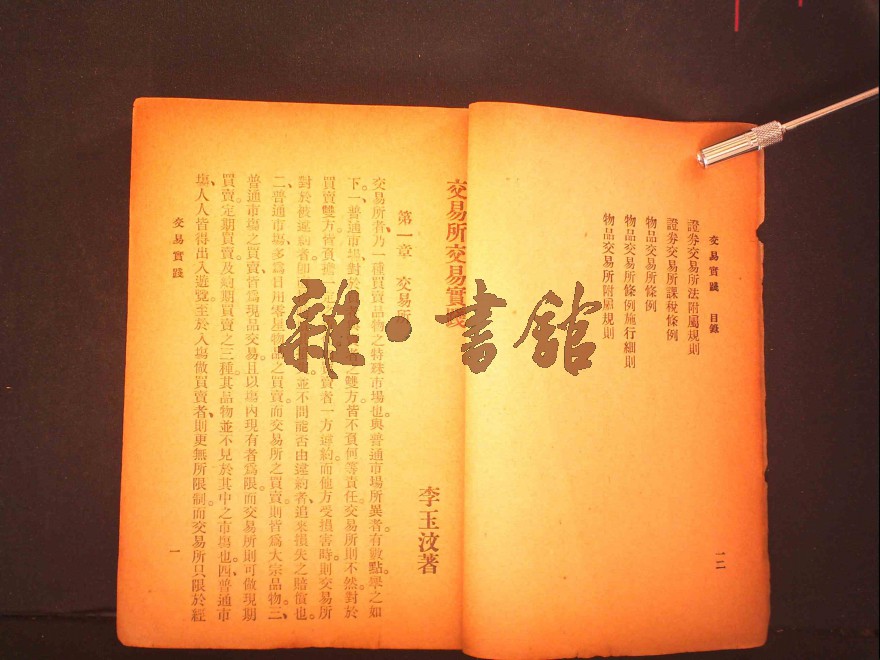 交易實踐 目錄
證券交易所法附屬規則
證券交易所課稅條例
物品交易所條例
物品交易所條例施行細則
物品交易所附屬規則
一二
交易所交易實踐
李玉汶著
第一章 交易所
交易所者、乃一種買賣品物之特殊市場也。與普通市場所異者、有數點。舉之如
下。一、普通市場、對於之雙方、皆不負何等責任。交易所則不然。對於
買賣雙方、皆負擔賣者一方違約、而他方受損害時、則交易所
對於被違約者、即並不問能否由違約者、追來損失之賠償也。
二、普通市場、多爲日用零星物品之買賣。而交易所之買賣、則皆爲大宗品物。三、
普通市場之買賣、皆爲現品交易。且以場內現有者爲限。而交易所、則可做現期
買賣、定期買賣、及約期買賣之三種。其品物並不見於其中之市場也。四、普通市
場、人人皆得出入遊覽。至於入場做買賣者、則更無所限制。而交易所、只限於經
交易實踐
一
雜·書館